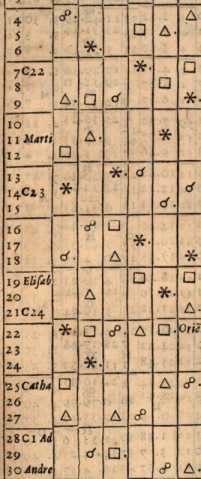 4 ☍. △
5 □ △.
6 ⚹.
7 C22 ⚹. □
8 □
9 △. □ ☌ ⚹.
10
11 Marti △. ⚹
12 □
13 ⚹. ☌
14 C23 ⚹ ☌
15 ☌.
16 ☍ □
17 ⚹.
18 ☌. △ ⚹
19 Elisab □ □
20 △ ⚹.
21 C24 △.
22 ⚹. □ ☍. △ □. Orie
23
24 ⚹.
25 Catha □ △ ☍.
26
27 △ △ ☍
28 C1 Ad
29 ☌ □.
30 Andre ☍ △.